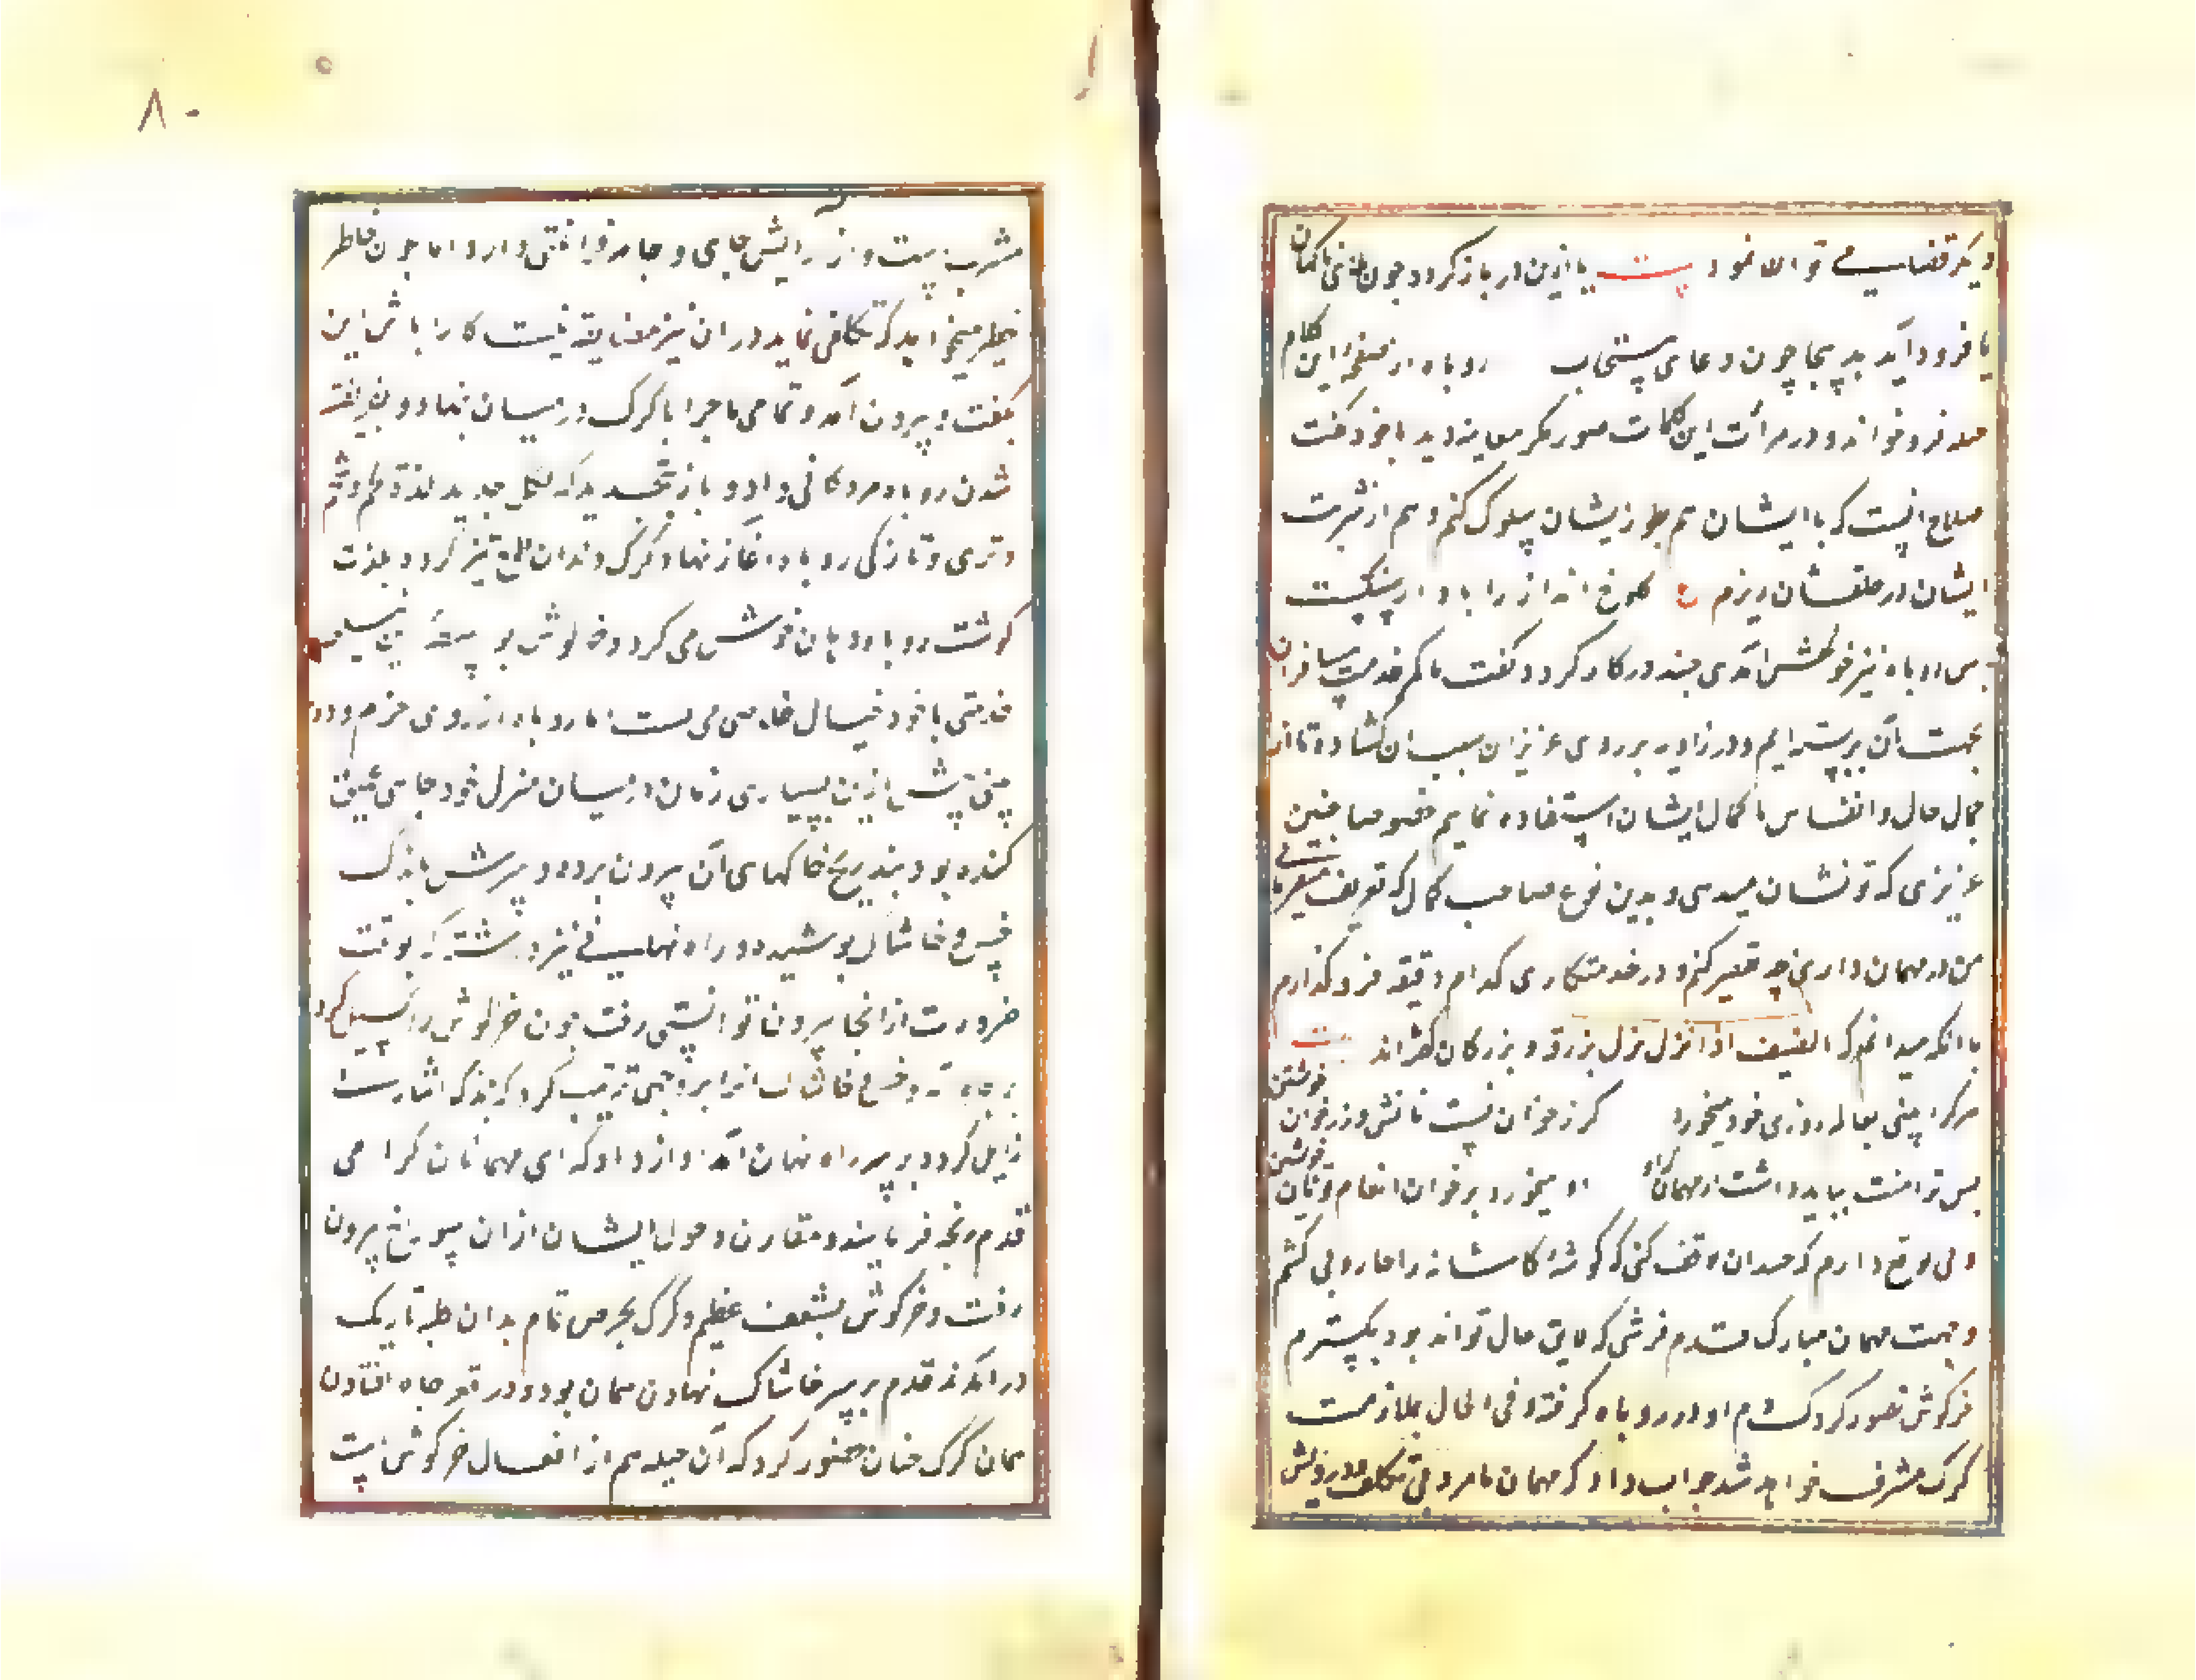 دیگر قضا می توان نمود بیت یا ازین در باز گردد چون غنی ناگهان
یا فرود آید بدینجا چون دعای مستجاب روباه از صفحه این کلام
حیله فرو خواند و در مرآت این کلمات صور مکر معاینه دید با خود گفت
صلاح انیست که با ایشان هم بطور ایشان سلوک کنم و هم از شربت
ایشان در حلقشان ریزم ع کلوخ انداز را پاداش سنگست
پس روباه نیز خوش آمدی چند در کار کرد و گفت ما کمر خدمت مسافران
بجهت آن بر بسته ایم و در زاویه بر روی عزیزان بسبب ان گشاده تا از
جمال حال و انفاس با کمال ایشان استفاده نمایم خصوصا چنین
عزیزی که تو نشان میدهی و بدین نوع صاحب کمال که تعریف میفرمایی
من در مهمان داری چه تقصیر کنم و در خدمتکاری کدام دقیقه فرو گذارم
با آنکه میدانم که الضیف اذا نزل نزل برزقه و بزرگان گفته اند بیت
هرکرا بینی بعالم روزی خود میخورد گر ز خوان تست نانش ور ز خوان خویشتن
پس ترا منت بباید داشت از مهمان که او میخورد بر خوان انعام تو نان خویشتن
ولی توقع دارم که چندان توقف کنی که گوشه کاشانه را جاروبی کشم
و جهت مهمان مبارک قدم فرشی که لایق حال تواند بود بگسترم
خرگوش تصور کرد که دم او در روباه گرفته و فی الحال بملازمت
گرگ مشرف خواهد شد جواب داد که مهمان مردی بی تکلف درویش
مشرب است و از آرایش جای و جامه فراغتی دارد اما چون خاطر
خطیر میخواهد که تکلفی نماید در ان نیز مضایقه نیست کار را باش این
بگفت و بیرون آمد و تمامی ماجرا با گرگ در میان نهاد و بفریفته
شدن روباه مژدگانی داد و باز بتجدید که لکل جدید لذة لحم و شحم
و تری و تازگی روباه آغاز نهاد و گرگ دندان طمع تیز کرد و بلذت
گوشت روباه دهان خوش می کرد و خرگوش بواسطه این
خدمتی با خود خیال خلاصی می بست اما روباه از روی حزم و دور
بینی پیش ازین ببسیاری زمان در میان منزل خود جای عمیق
کنده بود و بتدریج خاکهای آن بیرون برده و سرش باندک
خس و خاشاک پوشیده و راه نهانی نیز داشت که بوقت
ضرورت از انجا بیرون توانستی رفت چون خرگوش را گسیل کرد
چاه آمد و خس و خاشاک انرا بروجهی ترتیب کرد که باندک اشارت
زایل گردد و بر سر راه نهان آمد آواز داد که ای مهمانان گرامی
قدم رنجه فرمایید و مقارن دخول ایشان از ان سوراخ بیرون
رفت و خرگوش بشعف عظیم و گرگ بحرص تمام بدان کلبه تاریک
در آمدند قدم بر سر خاشاک نهادن همان بود و در قعر چاه افتادن
همان گرگ چنان تصور کرد که آن حیله هم از افعال خرگوش است
۸۰